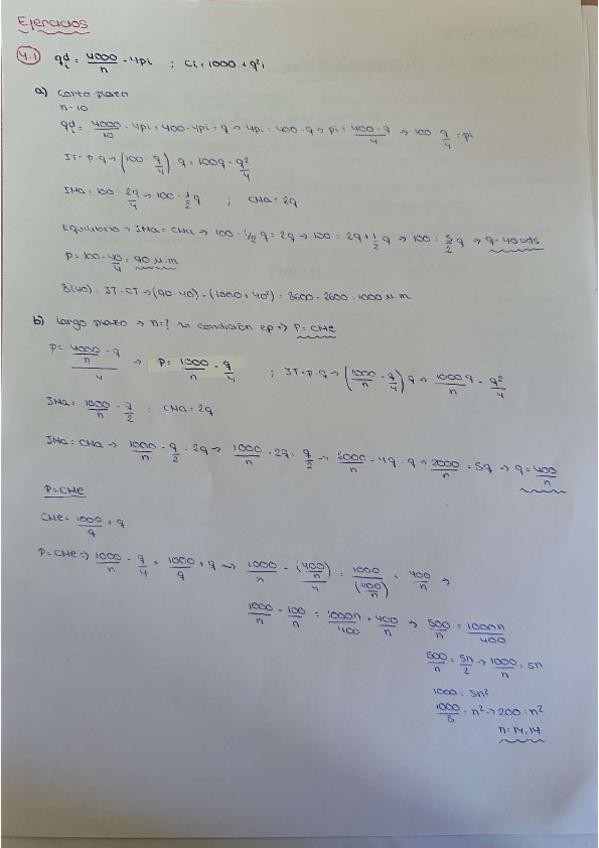 Ejercicios
4.1 qdi = 4000/n - 4pi ; Ci = 1000 + q²i
a) Corto plazo
n = 10
qdi = 4000/10 - 4pi = 400 - 4pi = q → 4pi = 400 - q → pi = (400 - q)/4 → 100 - q/4 = pi
IT = p·q → (100 - q/4) q = 100q - q²/4
IMa = 100 - 2q/4 → 100 - 1/2 q ; CMa = 2q
Equilibrio → IMa = CMa → 100 - 1/2 q = 2q → 100 = 2q + 1/2 q → 100 = 5/2 q → q = 40 uds
P = 100 - 40/4 = 90 u.m
B(40) = IT - CT → (90·40) - (1000 + 40²) = 3600 - 2600 = 1000 u.m
b) Largo plazo → n = ? condición ep → P = CMe
P = (4000/n - q)/4 → P = 1000/n - q/4 ; IT = p·q → (1000/n - q/4) q → 1000q/n - q²/4
IMa = 1000/n - q/2 ; CMa = 2q
IMa = CMa → 1000/n - q/2 = 2q → 1000/n - 2q = q/2 → 2000/n - 4q = q → 2000/n = 5q → q = 400/n
P = CMe
CMe = 1000/q + q
P = CMe → 1000/n - q/4 = 1000/q + q → 1000/n - (400/n)/4 = 1000/(400/n) + 400/n →
1000/n - 100/n = 1000n/400 + 400/n → 500/n = 1000n/400
500/n = 5n/2 → 1000/n = 5n
1000 = 5n²
1000/5 = n² → 200 = n²
n = 14,14